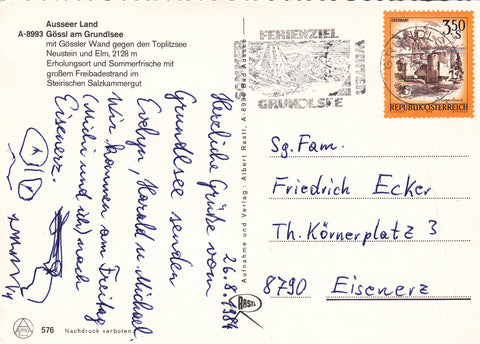 Ausseer Land
A-8993 Gössl am Grundlsee
mit Gössler Wand gegen den Toplitzsee
Neustein und Elm, 2128 m
Erholungsort und Sommerfrische mit
großem Freibadestrand im
Steirischen Salzkammergut
SOMMER
FERIENZIEL
WINTER
GRUNDLSEE
3,50
S
OBERWART
REPUBLIK ÖSTERREICH
26.8.1984
Herzliche Grüße vom
Grundlsee senden
Evelyn, Harald u. Michael
Wir kommen am Freitag
(Michi und ich) nach
Eisenerz.
Sg. Fam.
Friedrich Ecker
Th. Körnerplatz 3
8790 Eisenerz
Aufnahme und Verlag: Albert Rastl, A-8990 Bad Aussee
RASTL
576 Nachdruck verboten